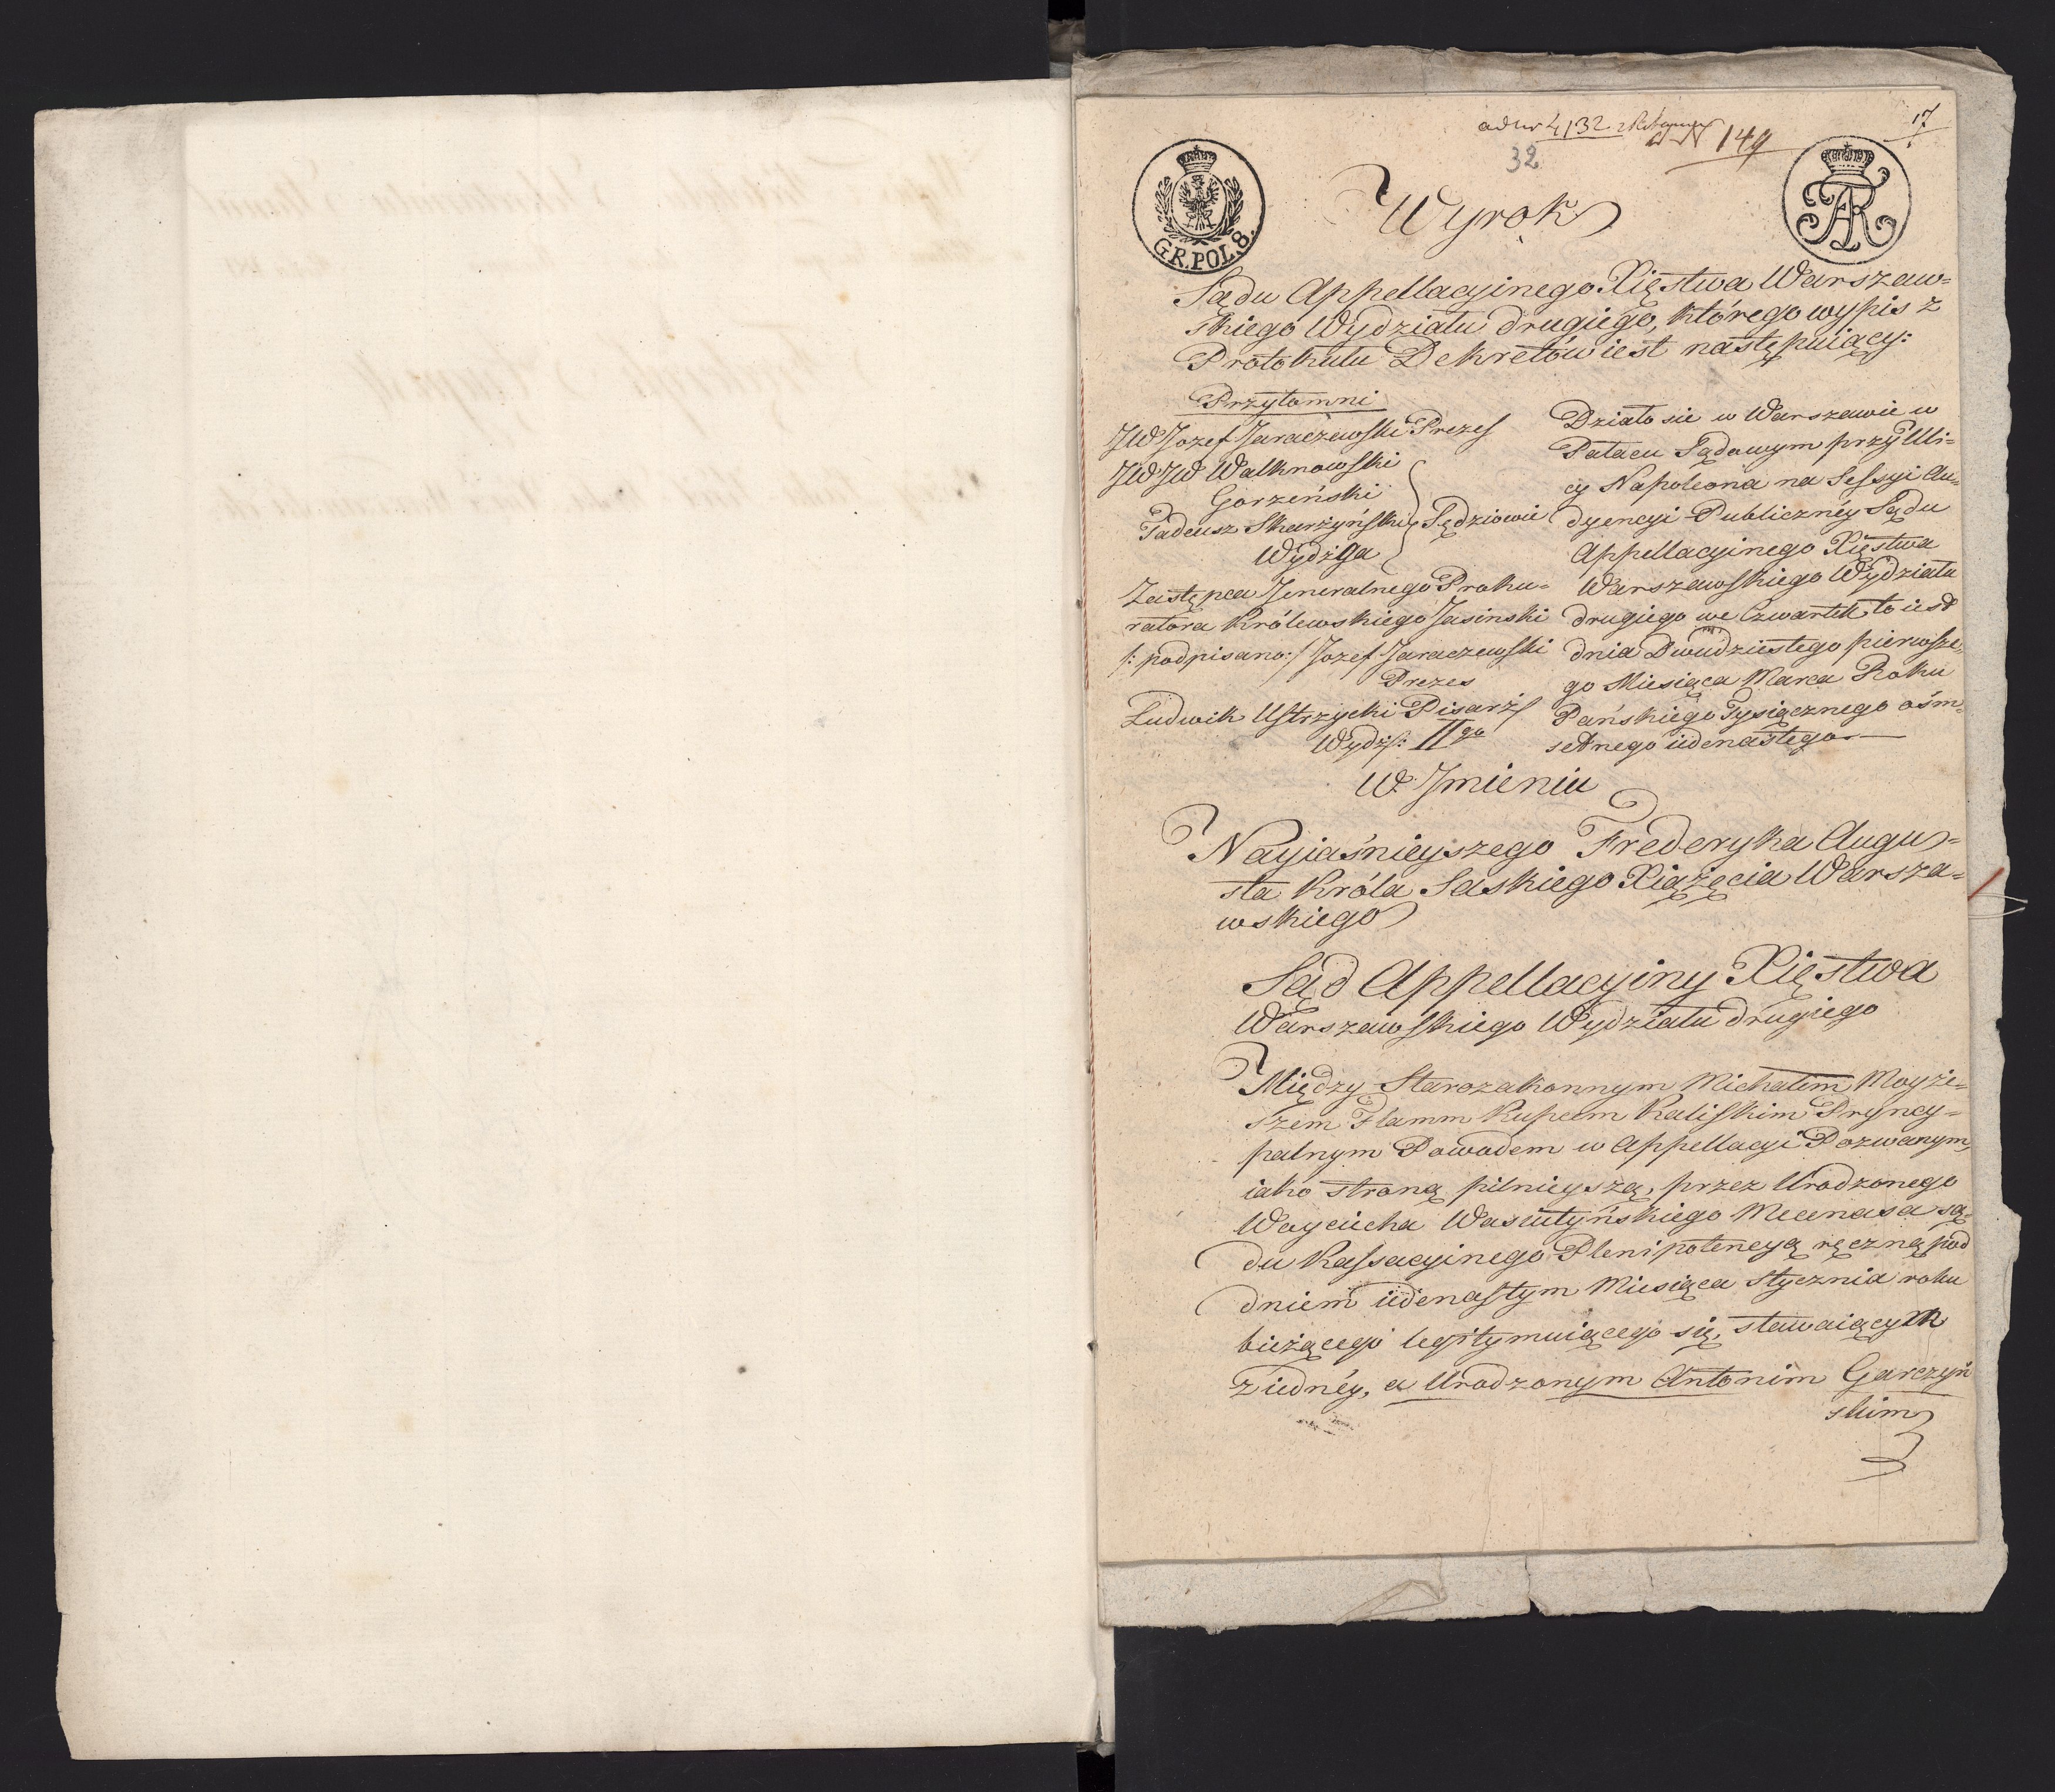 ad Nr 4132
149
17
32
GR. POL. 8.
Wyrok
Sądu Appellacyinego Xięstwa Warszaw=
skiego Wydziału drugiego, którego wypis z
Protokułu Dekretów iest następuiący:
Przytomni
JW Jozef Jaraczewski Prezes
JWJW Walknowski
Gorzeński
Tadeusz Skarżyński Sędziowie
Wydżga
Zastępca Jeneralnego Proku=
ratora Królewskiego Jasinski
/: podpisano :/ Jozef Jaraczewski
Prezes
Ludwik Ustrzycki Pisarz
Wydz: II go
Działo sie w Warszawie w
Pałacu Sądowym przy Uli=
cy Napoleona na Sessyi Au=
dyencyi Publiczney Sądu
Appellacyinego Xięstwa
Warszawskiego Wydziału
drugiego we Czwartek to iest
dnia Dwudziestego pierwsze=
go Miesiąca Marca Roku
Pańskiego Tysiącznego ośm=
setnego iedenastego
W Jmieniu
Nayiaśnieyszego Frederyka Augu=
sta Króla Saskiego Xiążęcia Warsza=
wskiego
Sąd Appellacyiny Xięstwa
Warszawskiego Wydziału drugiego
Między Starozakonnym Michałem Moyże=
szem Flamm Kupcem Kaliskim Pryncy=
palnym Powodem w Appellacyi Pozwanym,
iako stroną pilnieyszą, przez Urodzonego
Woyciecha Wasiutyńskiego Mecenasa są=
du Kassacyinego Plenipotencyą ręczną pod
dniem iedenastym Miesiąca Stycznia roku
bieżącego legitymuiącego się, stawaiącym
z iednéy, a Urodzonym Antonim Garczyń
skim